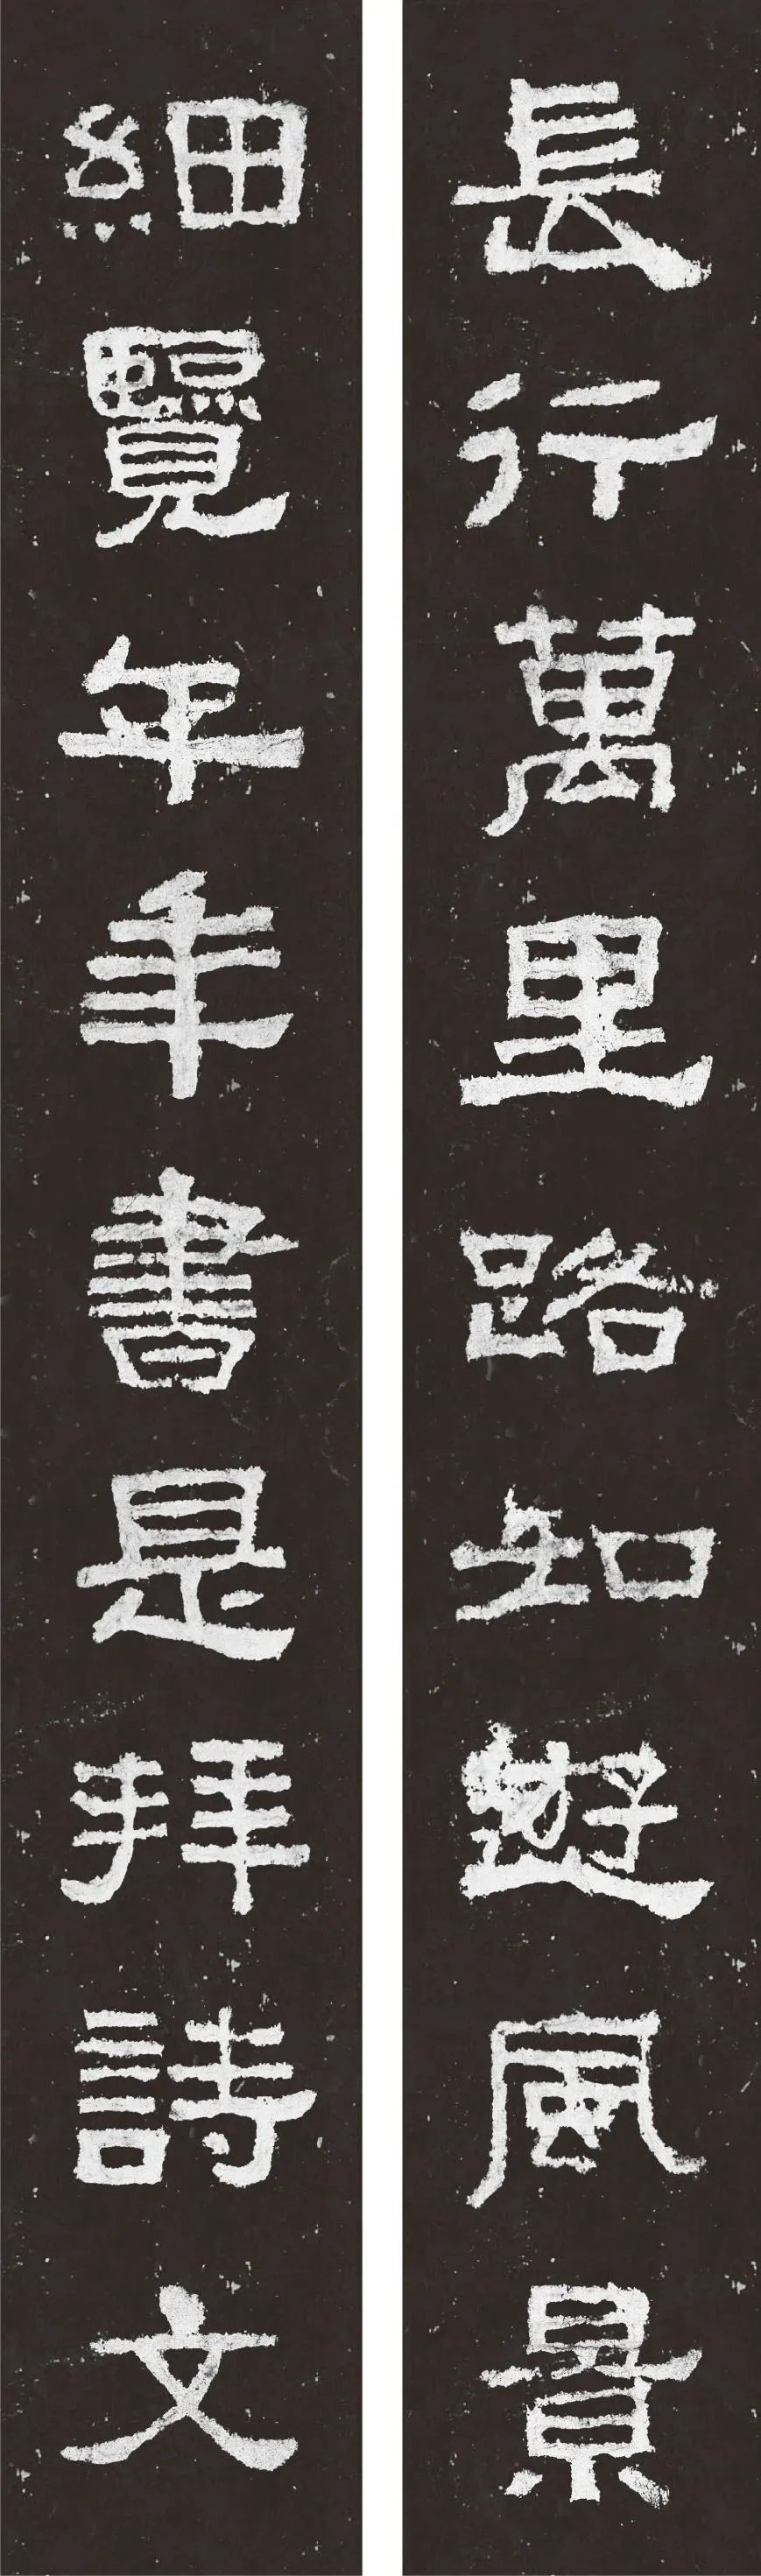 長行萬里路知遊風景
細覽年年書是拜詩文